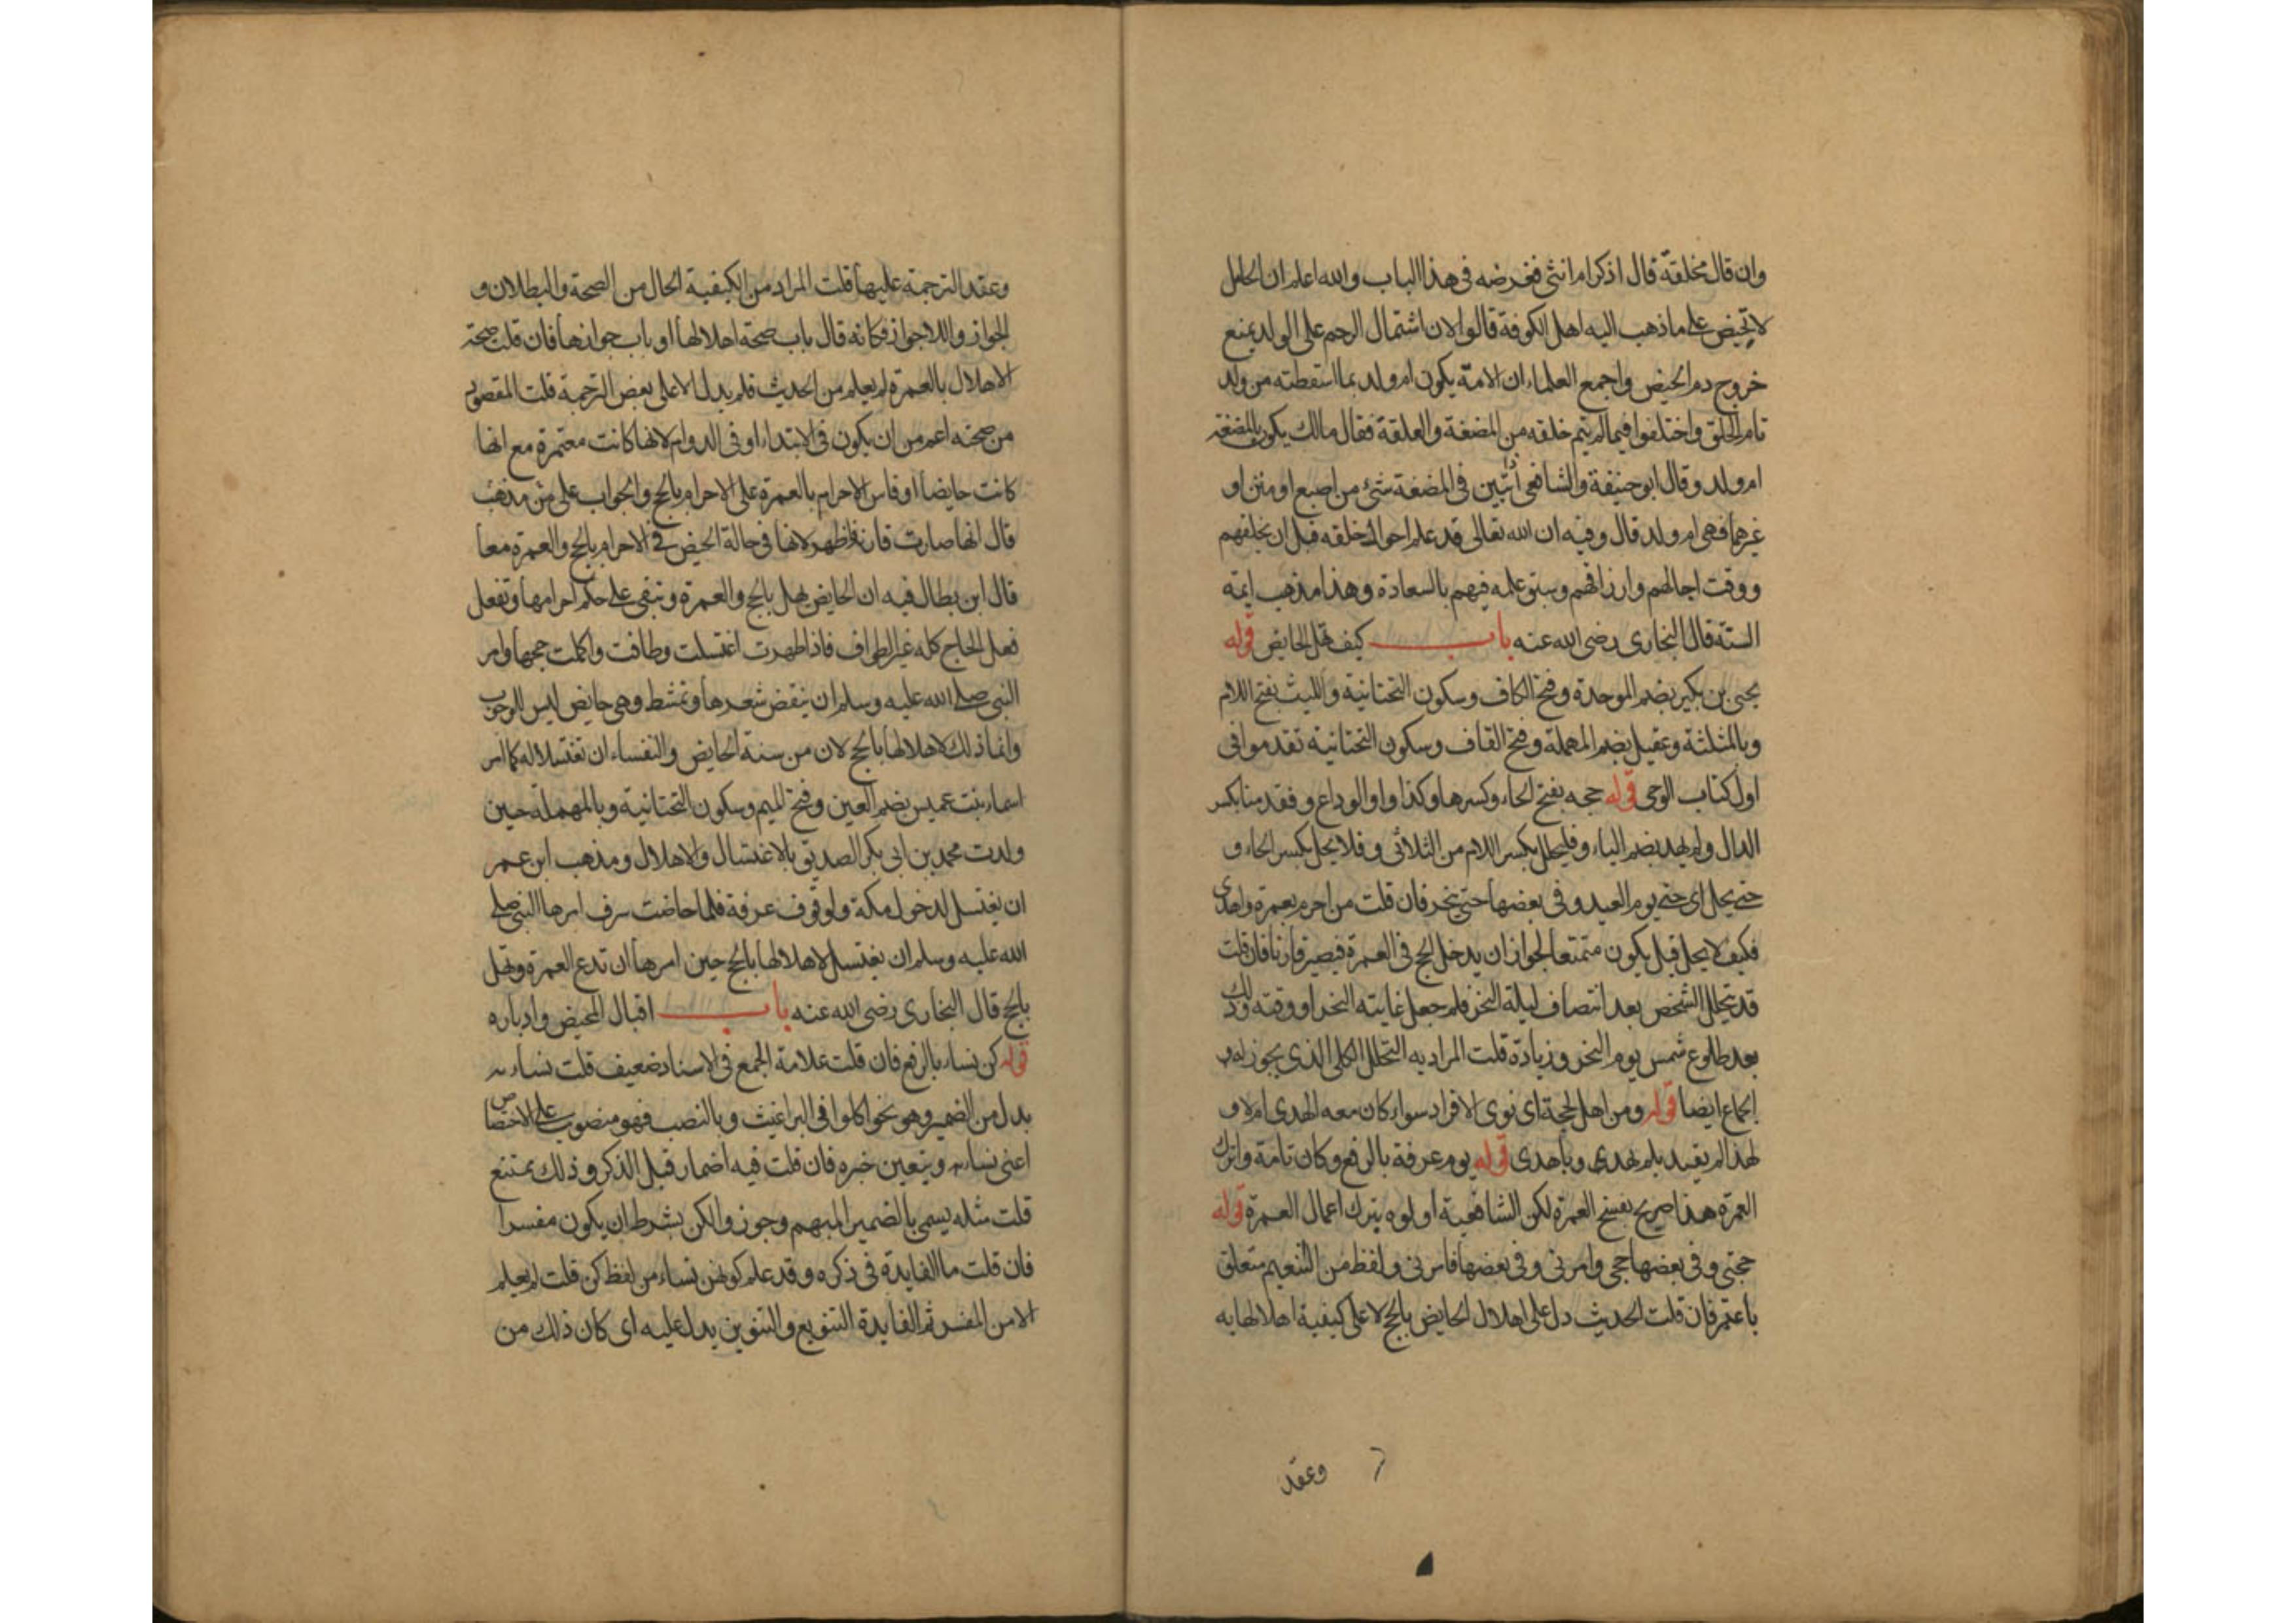 وان قال مخلقة قال اذكر ام انثى فغرضه فى هذا الباب والله اعلم ان الحامل
لا تحيض على ما ذهب اليه اهل الكوفة قالوا لان اشتمال الرحم على الولد يمنع
خروج دم الحيض واجمع العلماء ان الامة يكون ام ولد بما اسقطته من ولد
تام الخلق واختلفوا فيما لم يتم خلقه من المضغة والعلقة فقال مالك يكون بالمضغة
ام ولد وقال ابو حنيفة والشافعى ان تبين فى المضغة شئ من اصبع او
غيرهما فهى ام ولد قال وفيه ان الله تعالى قد علم احوال خلقه قبل ان يخلقهم
ووقت اجالهم وارزاقهم وسبق علمه فيهم بالسعادة وهذا مذهب ايمة
السنة قال البخارى رضى الله عنه باب كيف تهل الحايض قوله
يحيى بن بكير بضم الموحدة وفتح الكاف وسكون التحتانية والليث بفتح اللام
وبالمثلثة وعقيل بضم المهملة وفتح القاف وسكون التحتانية تقدموا فى
اول كتاب الوحى قوله حجه بفتح الحاء وكسرها وكذا واو الوداع و فقدمنا بكسر
الدال ولم يهد بضم الياء و فليحلل بكسر اللام من الثلاثى و فلا يحل بكسر الحاء و
حتى يحل اى حتى يوم العيد وفى بعضها حتى ينحر فان قلت من احرم بعمرة واهدى
فكيف لا يحل قبل يكون متمتعا لجواز ان يدخل الحج فى العمرة فيصير قارنا فان قلت
قد يتحلل الشخص بعد انتصاف ليلة النحر فلم جعل غايته النحر او وقته وذلك
بعد طلوع شمس يوم النحر وزيادة قلت المراد به التحلل الكلى الذى يجوز له
الجماع ايضا قوله ومن اهل بحجة اى نوى الافراد سواء كان معه الهدى ام لا و
لهذا لم يقيد بلم يهدى وباهدى قوله يوم عرفة بالرفع وكان تامة واترك
العمرة هذا صريح بفسخ العمرة لكن الشافعية اولوه بترك اعمال العمرة قوله
حجتى وفى بعضها حجى وامرنى وفى بعضها فامرنى ولفظ من التنعيم متعلق
باعتمر فان قلت الحديث دل على اهلال الحايض بالحج لا على كيفية اهلالها به
وعقد
وعقد الترجمة عليها قلت المراد من الكيفية الحال من الصحة والبطلان و
الجواز واللاجواز فكانه قال باب صحة اهلالها او باب جوازها فان قلت صحة
الاهلال بالعمرة لم يعلم من الحديث فلم يدل الا على بعض الترجمة قلت المقصود
من صحته اعم من ان يكون فى الابتداء او فى الدوام لانها كانت معتمرة مع انها
كانت حايضا او قاس الاحرام بالعمرة على الاحرام بالحج والجواب على من مذهب
قال انها صارت قارنة فاظهر لانها فى حالة الحيض فى الاحرام بالحج والعمرة معا
قال ابن بطال فيه ان الحايض تهل بالحج والعمرة وتبقى على حكم احرامها وتفعل
فعل الحاج كله غير الطواف فاذا طهرت اغتسلت وطافت واكملت حجها وامر
النبى صلى الله عليه وسلم ان ينقض شعرها وتمشط وهى حايض ليس للوجوب
وانما ذلك لاهلالها بالحج لان من سنة الحايض والنفساء ان تغتسلا له كما امر
اسماء بنت عميس بضم العين وفتح الميم وسكون التحتانية وبالمهملة حين
ولدت محمد بن ابى بكر الصديق بالاغتسال والاهلال ومذهب ابن عمر
ان يغتسل لدخول مكة ولوقوف عرفة فلما حاضت بسرف امرها النبى صلى
الله عليه وسلم ان يغتسل لاهلالها بالحج حين امرها ان تدع العمرة وتهل
بالحج قال البخارى رضى الله عنه باب اقبال المحيض وادباره
قوله كن نساء بالرفع فان قلت علامة الجمع فى الاسناد ضعيف قلت نساء
بدل من الضمير وهو نحو اكلوا فى البراغيث وبالنصب فهو منصوب على الاختصاص
اعنى نساء ويتعين خبره فان قلت فيه اضمار قبل الذكر وذلك ممتنع
قلت مثله يسمى بالضمير المبهم وجوزوا لكن بشرط ان يكون مفسرا
فان قلت ما الفايدة فى ذكره وقد علم كونهن نساء من لفظ كن قلت لم يعلم
الا من المفسر ثم الفايدة التنويع والتنوين يدل عليه اى كان ذلك من